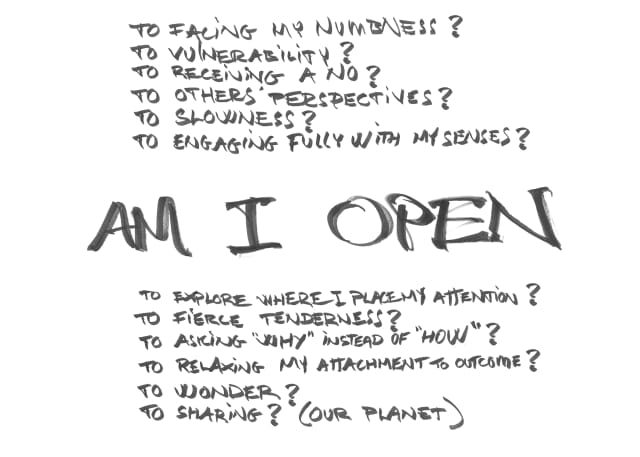 TO FACING MY NUMBNESS?
TO VULNERABILITY?
TO RECEIVING A NO?
TO OTHERS' PERSPECTIVES?
TO SLOWNESS?
TO ENGAGING FULLY WITH MY SENSES?
AM I OPEN
TO EXPLORE WHERE I PLACE MY ATTENTION?
TO FIERCE TENDERNESS?
TO ASKING "WHY" INSTEAD OF "HOW"?
TO RELAXING MY ATTACHMENT TO OUTCOME?
TO WONDER?
TO SHARING? (OUR PLANET)